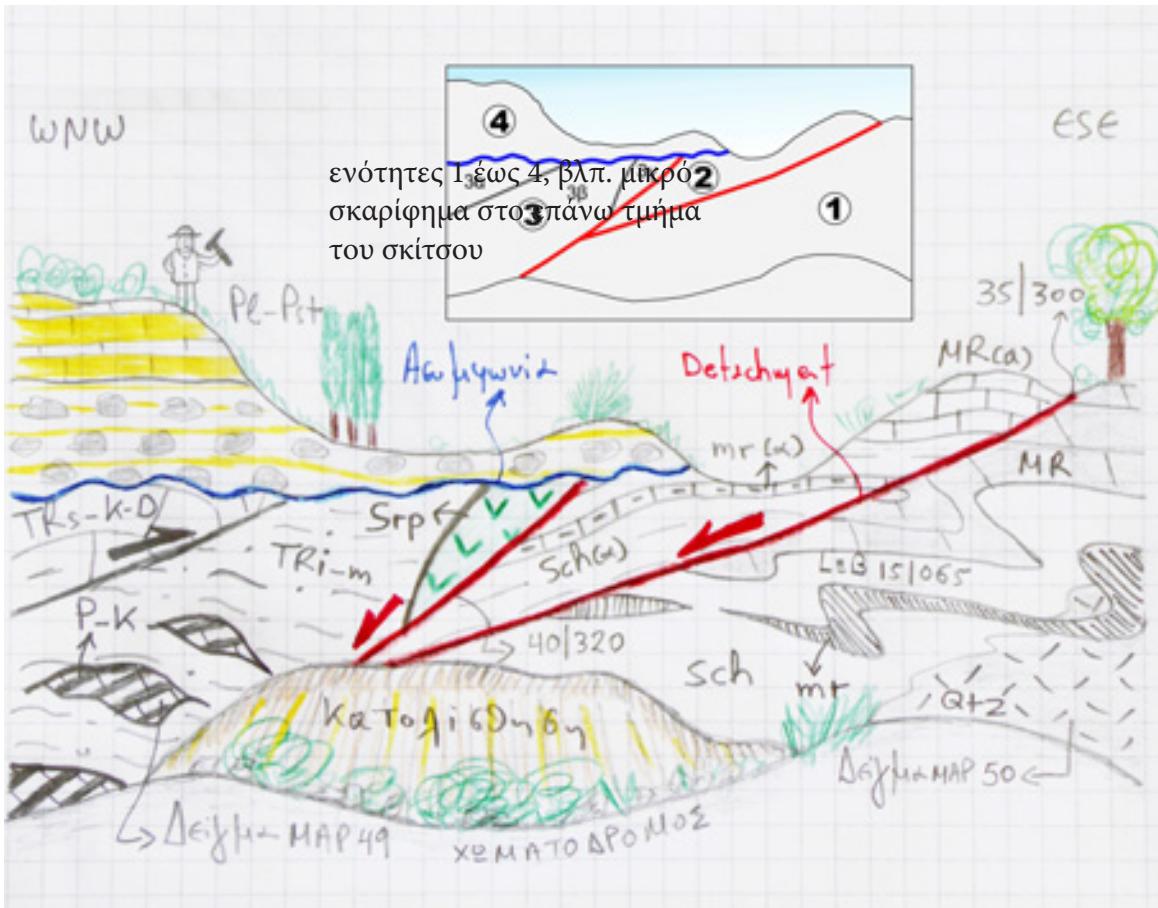 WNW
ESE
4
3α
3β
2
3
1
ενότητες 1 έως 4, βλπ. μικρό
σκαρίφημα στο επάνω τμήμα
του σκίτσου
35/300
Pl-Pst
Ασυμφωνία
Detachment
MR(α)
mr(α)
MR
TRs-K-D
Srp
TRi-m
Sch(α)
L=B 15/065
P-K
40/320
Sch
mr
Qtz
Κατολίσθηση
Δείγμα MAP 50
Δείγμα MAP 49
ΧΩΜΑΤΟΔΡΟΜΟΣ